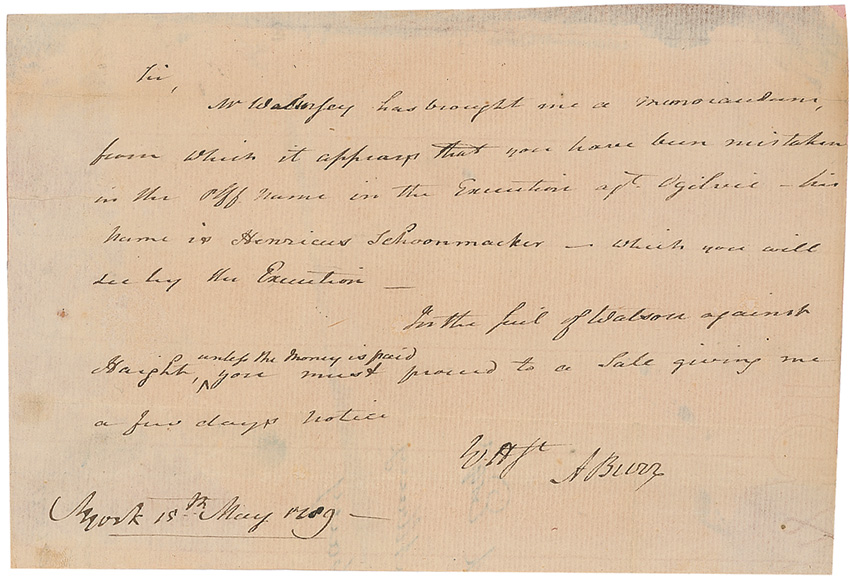 Sir,
Mr Walmsley has brought me a memorandum,
from which it appears that you have been mistaken
in the Plff name in the Execution agt. Ogilvie — his
name is Henricus Schoonmacker — which you will
see by the Execution —
In the suit of Watson against
unless the money is paid
Haight, ^ you must proceed to a Sale giving me
a few days notice
A Burr
NYork 15th May 1789 —